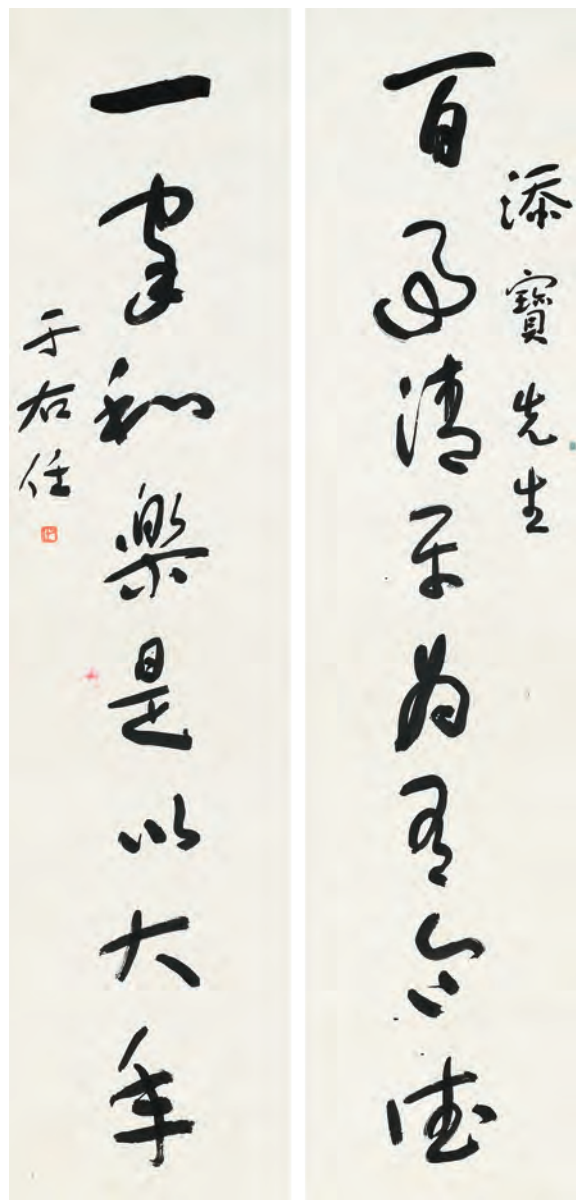 添寶先生
百事清平為有令德
一家和樂是以大年
于右任